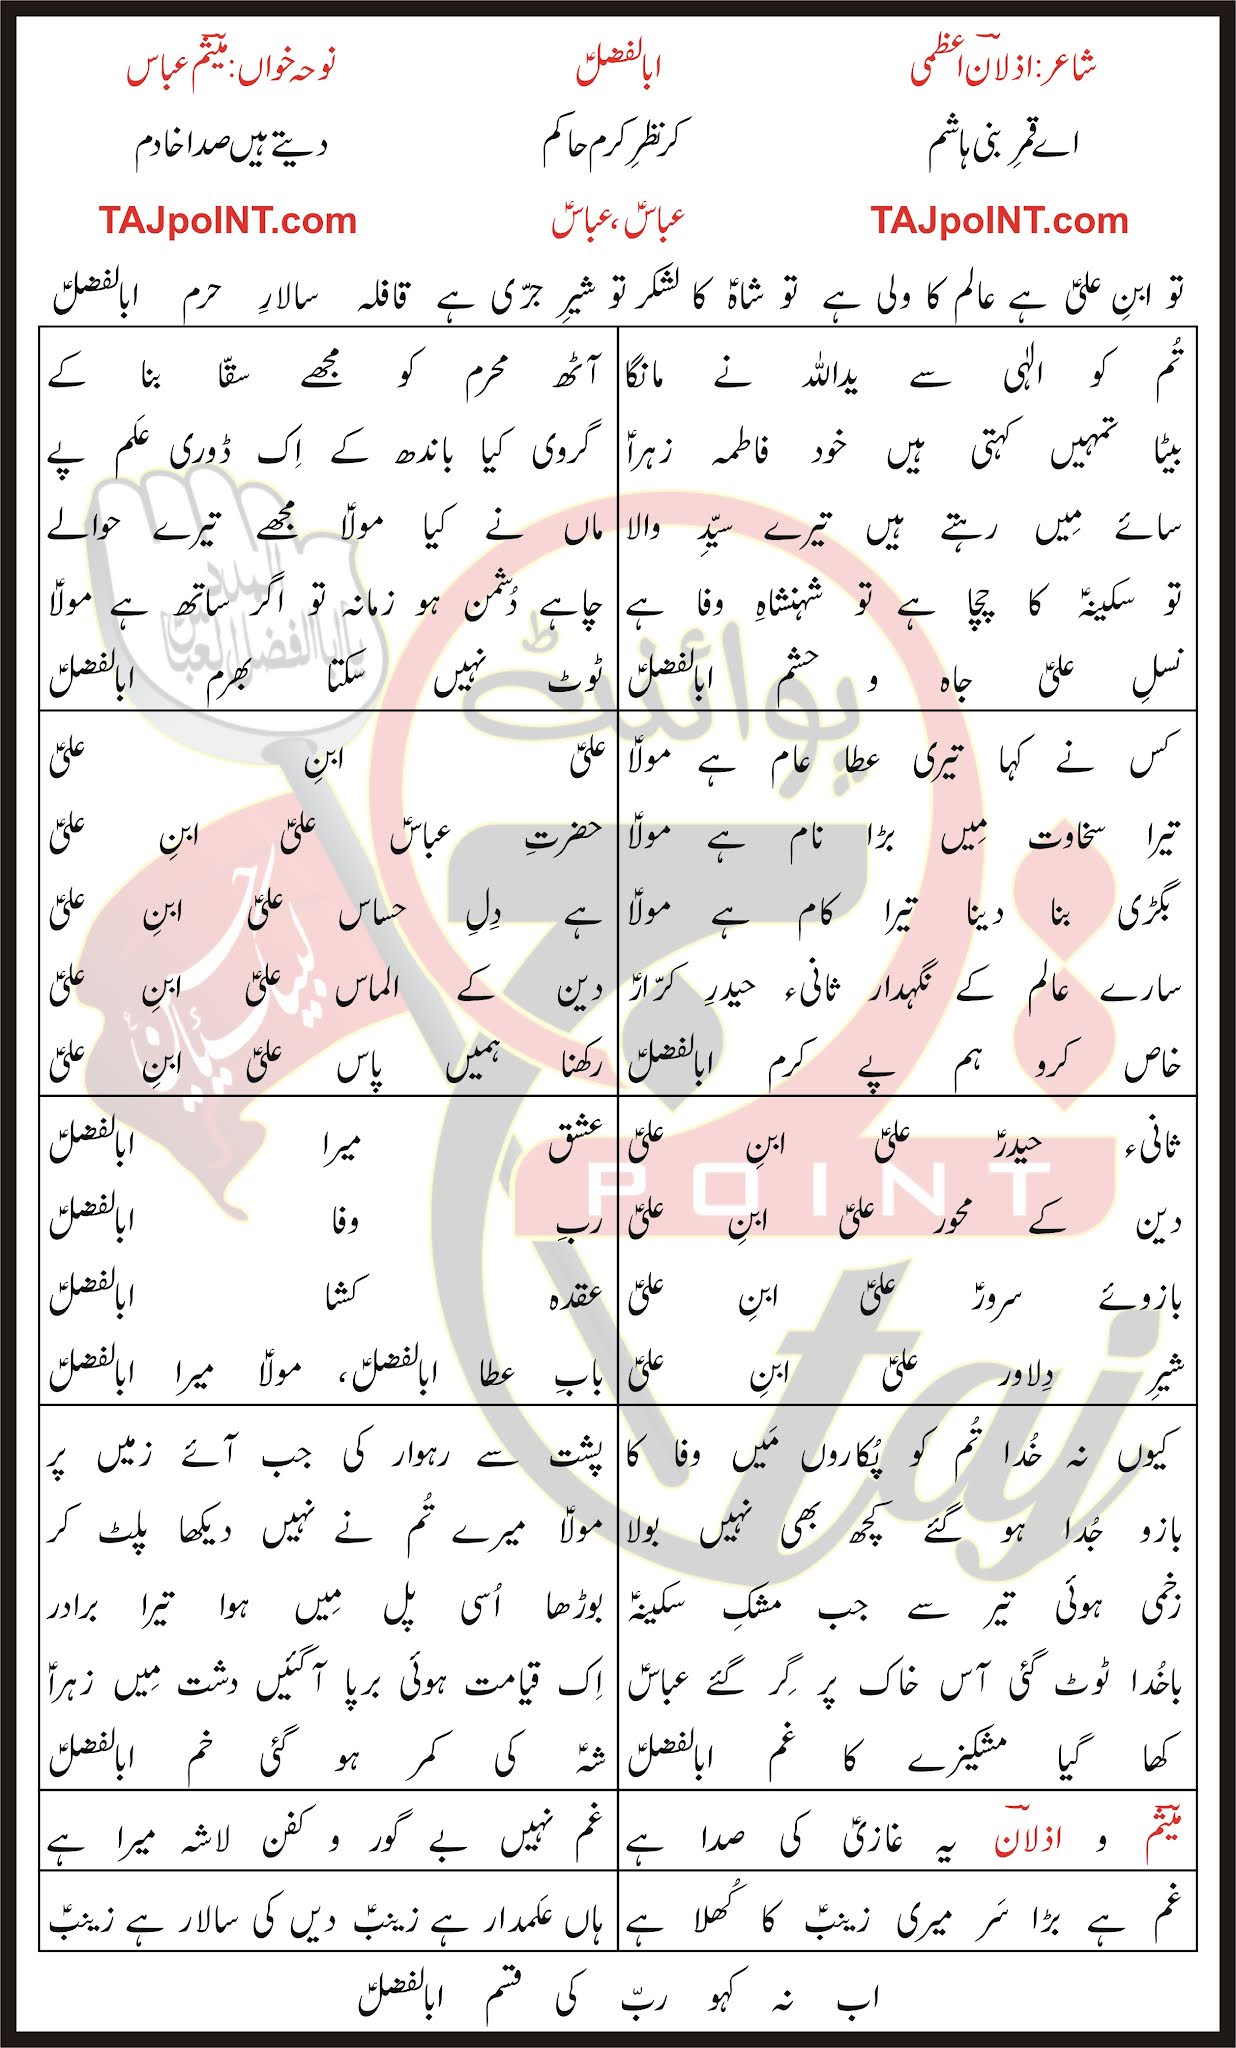 شاعر: اذلان اعظمی
ابالفضلؑ
نوحہ خواں: میثم عباس
اے قمرِ بنی ہاشم
کر نظرِ کرم حاکم
دیتے ہیں صدا خادم
TAJpoINT.com
عباسؑ، عباسؑ
TAJpoINT.com
تو ابنِ علیؑ ہے عالم کا ولی ہے تو شاہؑ کا لشکر تو شیرِ جرّی ہے قافلہ سالارِ حرم ابالفضلؑ
تُم کو الٰہی سے یداللہ نے مانگا
بیٹا تمہیں کہتی ہیں خود فاطمہ زہراؑ
سائے مِیں رہتے ہیں تیرے سیّدِ والا
تو سکینہؑ کا چچا ہے تو شہنشاہِ وفا ہے
نسلِ علیؑ جاہ و حشم ابالفضلؑ
آٹھ محرم کو مجھے سقّا بنا کے
گروی کیا باندھ کے اِک ڈوری عَلم پے
ماں نے کیا مولاؑ مجھے تیرے حوالے
چاہے دُشمن ہو زمانہ تو اگر ساتھ ہے مولاؑ
ٹوٹ نہیں سکتا بھرم ابالفضلؑ
کس نے کہا تیری عطا عام ہے مولاؑ
تیرا سخاوت مِیں بڑا نام ہے مولاؑ
بگڑی بنا دینا تیرا کام ہے مولاؑ
سارے عالم کے نگہدار ثانیء حیدرِ کرّارؑ
خاص کرو ہم پے کرم ابالفضلؑ
علیؑ ابنِ علیؑ
حضرتِ عباسؑ علیؑ ابنِ علیؑ
ہے دِلِ حساس علیؑ ابنِ علیؑ
دین کے الماس علیؑ ابنِ علیؑ
رکھنا ہمیں پاس علیؑ ابنِ علیؑ
ثانیء حیدرؑ علیؑ ابنِ علیؑ
دین کے محور علیؑ ابنِ علیؑ
بازوئے سرورؑ علیؑ ابنِ علیؑ
شیرِ دِلاور علیؑ ابنِ علیؑ
عشق میرا ابالفضلؑ
ربِ وفا ابالفضلؑ
عقدہ کشا ابالفضلؑ
بابِ عطا ابالفضلؑ، مولاؑ میرا ابالفضلؑ
کیوں نہ خُدا تُم کو پُکاروں مَیں وفا کا
بازو جُدا ہو گئے کچھ بھی نہیں بولا
زخمی ہوئی تیر سے جب مشکِ سکینہؑ
باخُدا ٹوٹ گئی آس خاک پر گِر گئے عباسؑ
کھا گیا مشکیزے کا غم ابالفضلؑ
پشت سے رہوار کی جب آئے زمیں پر
مولاؑ میرے تُم نے نہیں دیکھا پلٹ کر
بوڑھا اُسی پل مِیں ہوا تیرا برادر
اِک قیامت ہوئی برپا آ گئیں دشت مِیں زہراؑ
شہؑ کی کمر ہو گئی خم ابالفضلؑ
میثم و اذلان یہ غازیؑ کی صدا ہے
غم نہیں بے گور و کفن لاشہ میرا ہے
غم ہے بڑا سَر میری زینبؑ کا کُھلا ہے
ہاں عَلمدار ہے زینبؑ دیں کی سالار ہے زینبؑ
اب نہ کہو ربّ کی قسم ابالفضلؑ
پوائنٹ
POINT
taj